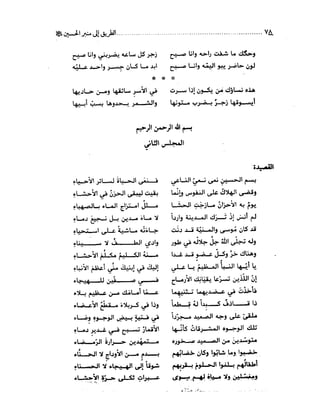 ٧٨ الطريق إلى منبر الحسين
وحگك ما شفت راحه وانا صبيح زجر كل ساعه يضربني وانا صيح
لون حاضر يبو اليمه وانا صيح ابد ما كان جسر واحد عليه
* * *
هذه نساؤك من يكون إذا سرت في الأسر سائقها ومن حاديها
أيسوقها زجر بضرب متونها والشمر يحدوها بسب أبيها
بسم الله الرحمن الرحيم
المجلس الثاني
القصيدة
بسم الحسين نعى نعي الناعي فنعى الحياة لسائر الأحياء
وقضى الهلاك على النفوس وإنما بقيت ليبقى الحزن في الأحشاء
يوم به الأحزان مازجت الحشا مثل امتزاج الماء بالصهباء
لم أنس إذ ترك المدينة وارداً لا ماء مدين بل نجيع دماء
قد كان موسى والمنية قد دنت جاءته ماشية على استحياء
وله تجلى الله جل جلاله في طور وادي الطف لا سيناء
وهناك خر وكل عضو قد غدا منه الكليم مكلم الأحشاء
يا أيها النبأ العظيم إليك في إبنيك مني أعظم الأنباء
إن اللذين تسرعا يقيانك الأرماح في صفين للهيجاء
فأخذت في عضديهما تثنيهما عما أمامك من عظيم بلاء
ذا قاذف كبداً له قطعاً وذا في كربلاء مقطع الأعضاء
ملقى على وجه الصعيد مجرداً في فتية بيض الوجوه وضاء
تلك الوجوه المشرقات كأنها الأقمار تسبح في غدير دماء
متوسدين من الصعيد صخوره متمهدين حرارة الرمضاء
خضبوا وما شابوا وكان خضابهم بدم من الأوداج لا الحناء
أطفالهم بلغوا الحلوم بقربهم شوقاً إلى الهيجاء لا الحسناء
ومغسلين ولا مياه لهم سوى عبرات ثكلى حرة الأحشاء